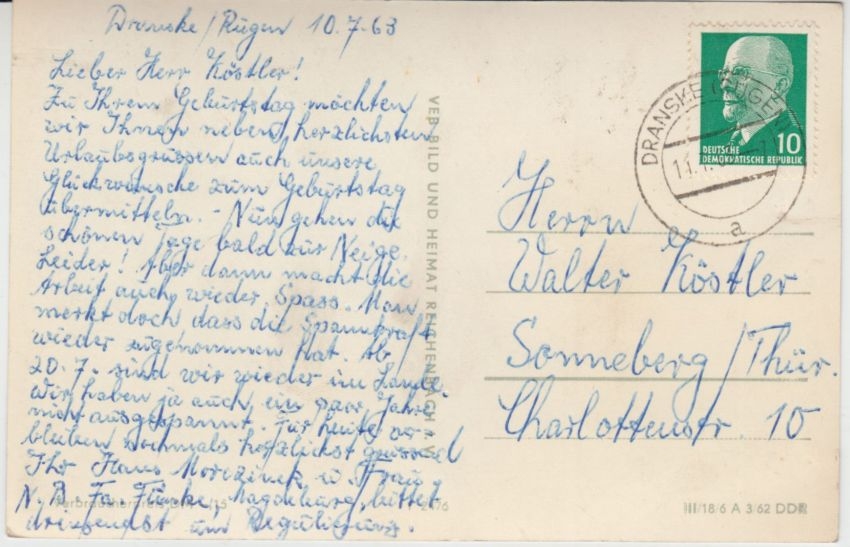 Dranske / Rügen 10.7.63
Lieber Herr Köstler!
Zu Ihrem Geburtstag möchten
wir Ihnen neben herzlichsten
Urlaubsgrüssen auch unsere
Glückwünsche zum Geburtstag
übermitteln. - Nun gehen die
schönen Tage bald zur Neige.
Leider! Aber dann macht die
Arbeit auch wieder Spass. Man
merkt doch dass die Spannkraft
wieder zugenommen hat. Ab
20.7. sind wir wieder im Lande.
Wir haben ja auch ein paar Jahre
nicht ausgespannt. Für heute ver-
bleiben nochmals herzlichst grüssend
Ihr Hans u. Frau
N.B. Fa. Funke, Magdeburg, bittet
dringendst um Regulierung.
VEB BILD UND HEIMAT REICHENBACH i. V.
DRANSKE (RÜGEN)
a
10
DEUTSCHE
DEMOKRATISCHE REPUBLIK
Herrn
Walter Köstler
Sonneberg / Thür.
Charlottenstr. 10
III/18/6 A 3/62 DDR